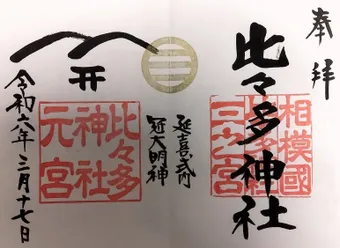 奉拝
相模國
三之宮
比々多神社
延喜式内
冠大明神
比々多
神社
元宮
令和六年三月十七日